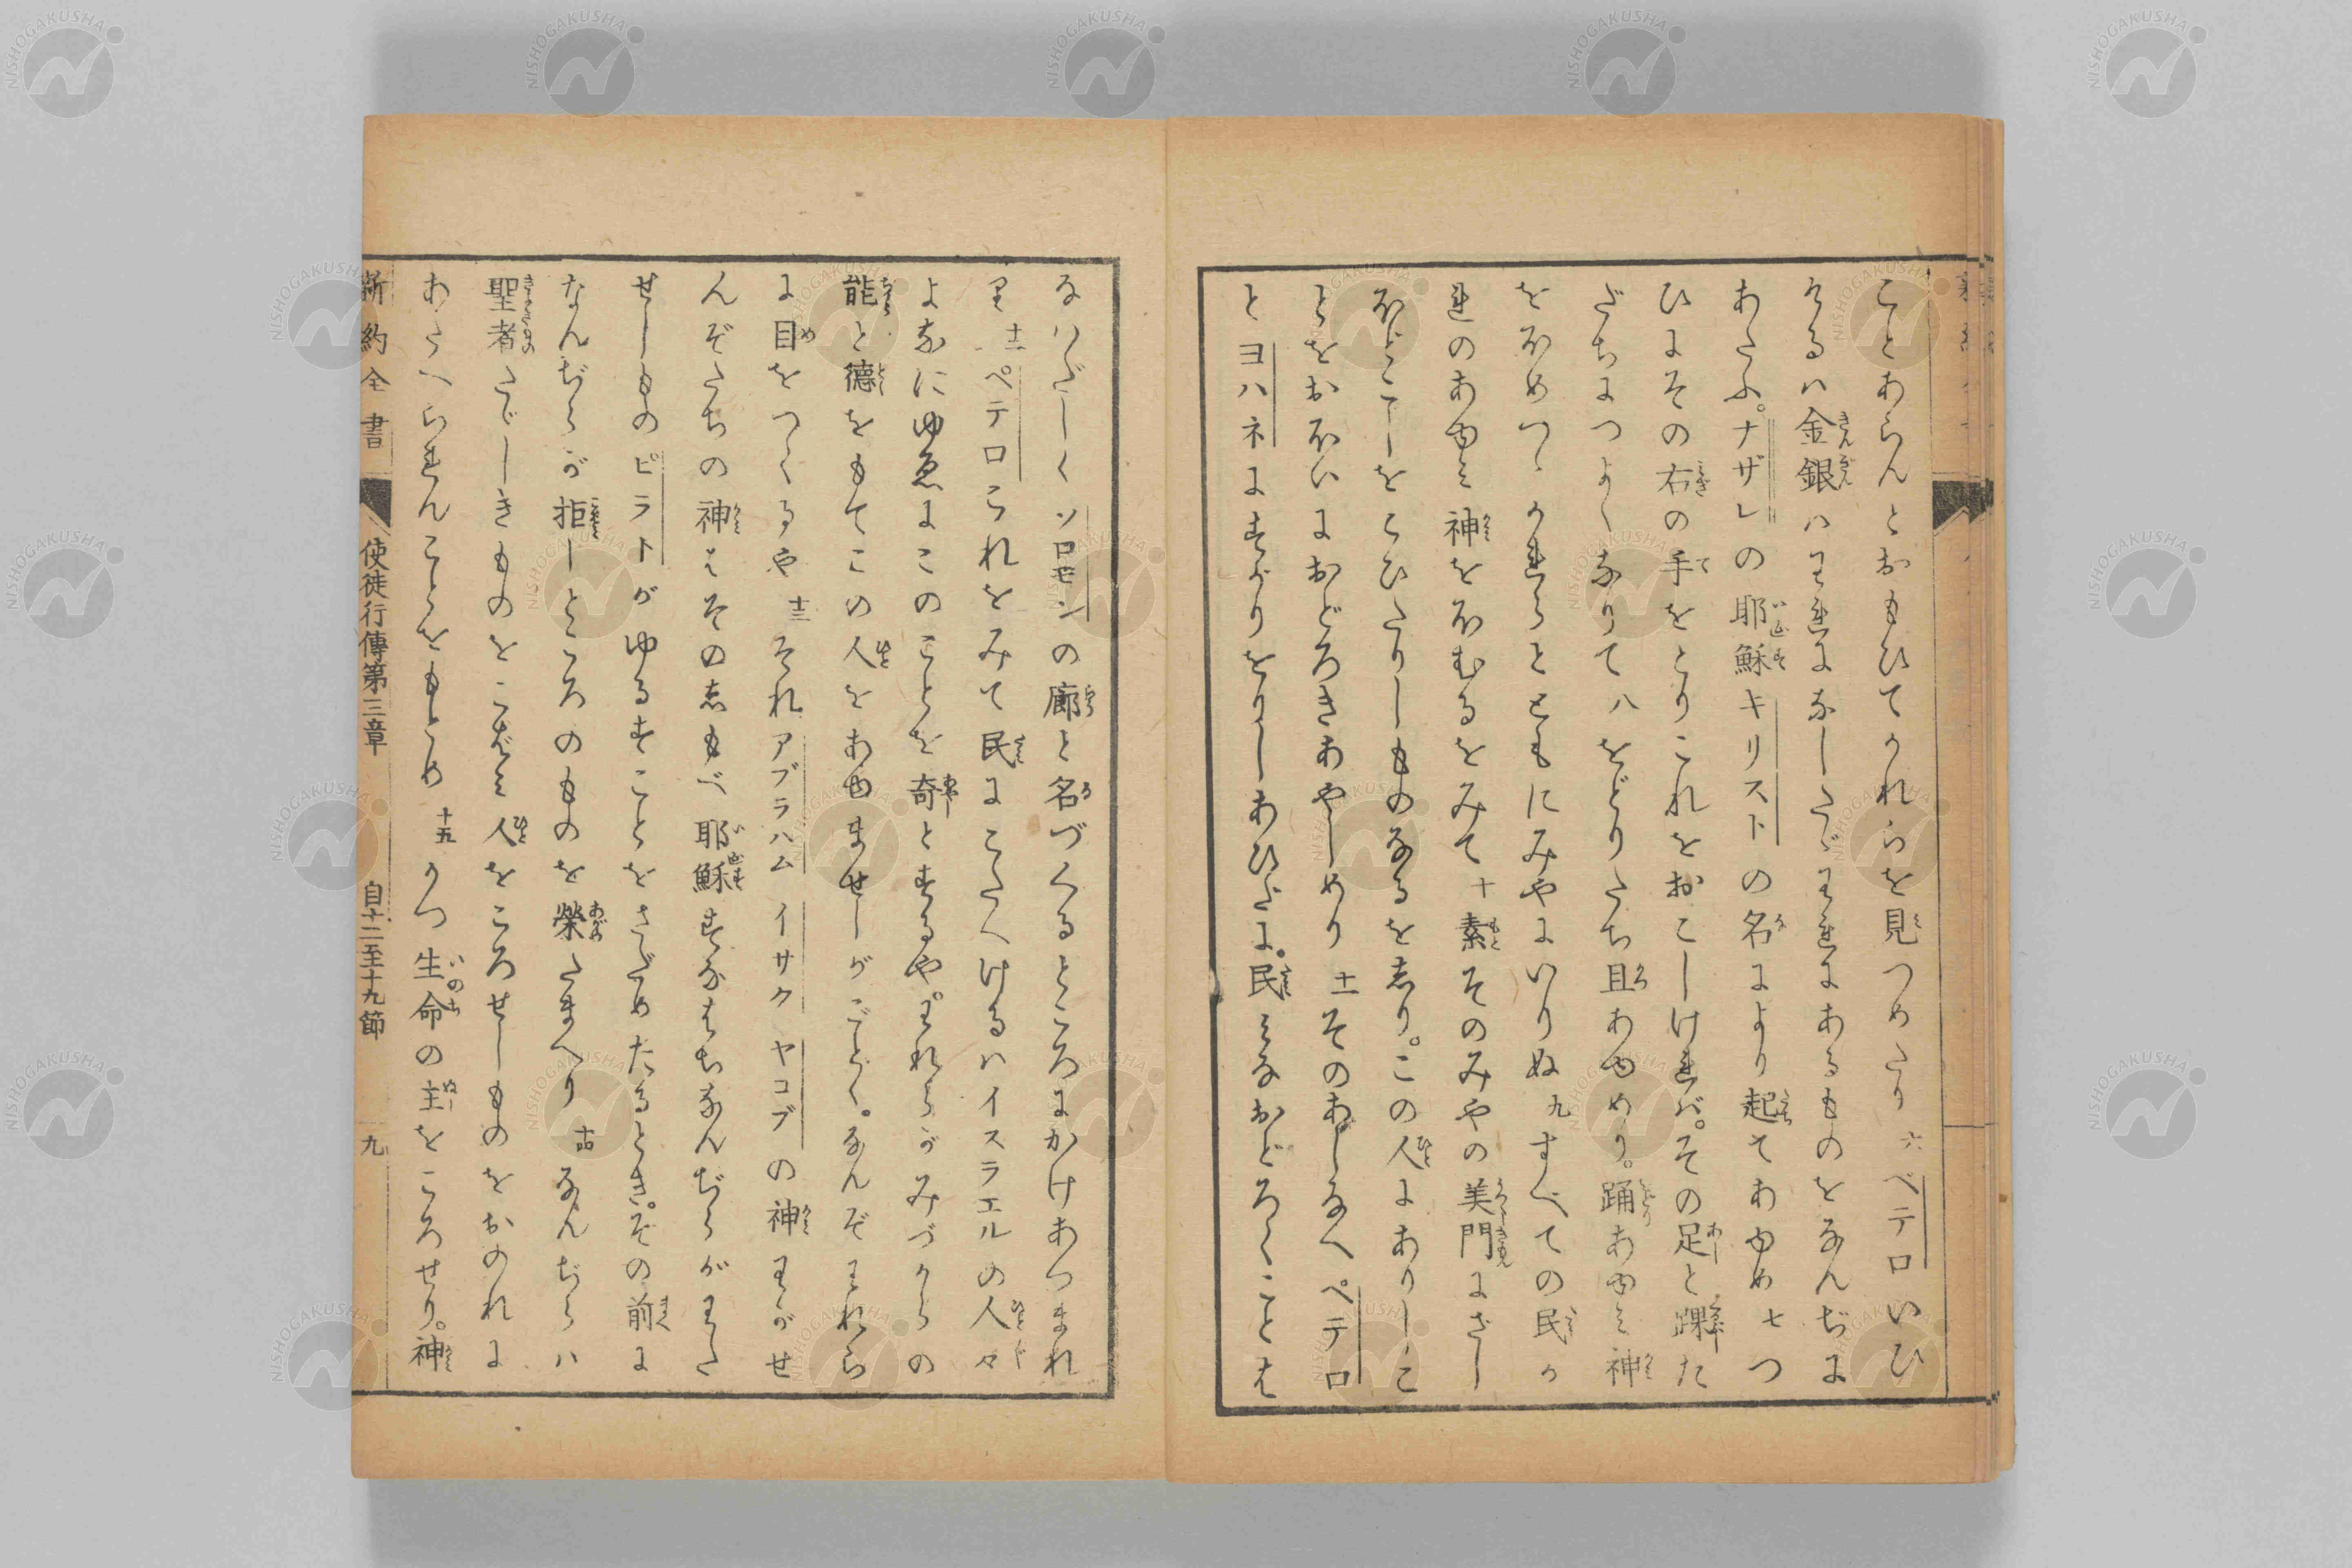 ことあらんとおもひてかれらを見つめたり 六 ペテロいひ
けるハ金銀ハわれになしたゞわれにあるものをなんぢに
あたふ。ナザレの耶穌キリストの名により起てあゆめ 七 つ
ひにその右の手をとりこれをおこしければ。その足と踝た
だちにつよくなりて 八 をどりたち且あゆめり。踊あゆみ神
をほめつゝかれらとともにみやにいりぬ 九 すべての民か
れのあゆみ神をほむるをみて 十 素そのみやの美門にざし
ほどこしをこひたりしものなるをしり。この人にありしこ
とをおほいにおどろきあやしめり 十一 そのあしなへペテロ
とヨハネにすがりをりしあひだに。民みなおどろくことは
なハだしくソロモンの廊と名づくるところにかけあつまれ
り 十二 ペテロこれをみて民にこたへけるハイスラエルの人々
よなにゆゑにこのことを奇とするや。われらがみづからの
能と德をもてこの人をあゆませしがごとく。なんぞわれら
に目をつくるや 十三 それアブラハム イサク ヤコブの神わがせ
んぞたちの神はそのしもべ耶穌すなはちなんぢらがわた
せしものピラトがゆるすことをさだめたるとき。その前に
なんぢらが拒しところのものを榮たまへり 十四 なんぢらハ
聖者たゞしきものをこばみ人をころせしものをおのれに
あたへられんことをもとめ 十五 かつ生命の主をころせり。神
新約全書 使徒行傳第三章 自十二至十九節 九